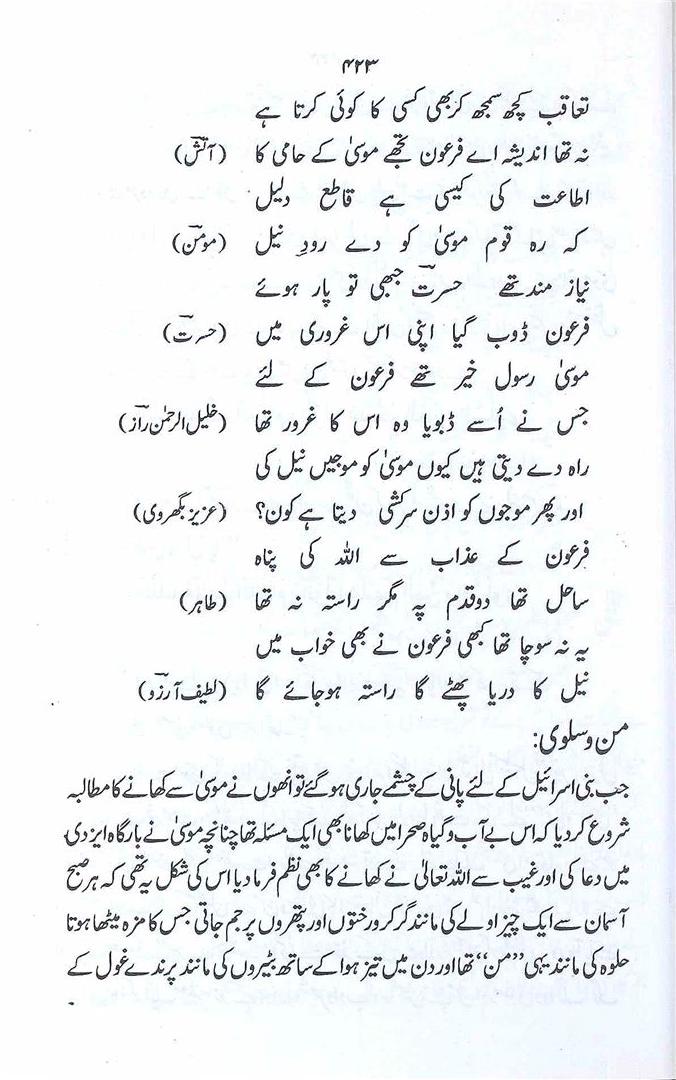 ۴۲۳
تعاقب کچھ سمجھ کر بھی کسی کا کوئی کرتا ہے
نہ تھا اندیشہ اے فرعون تجھے موسیٰ کے حامی کا (آتش)
اطاعت کی کیسی ہے قاطع دلیل
کہ رہ قوم موسیٰ کو دے رودِ نیل (مومن)
نیاز مند تھے حسرت جبھی تو پار ہوئے
فرعون ڈوب گیا اپنی اس غروری میں (حسرت)
موسیٰ رسول خیر تھے فرعون کے لئے
جس نے اُسے ڈبویا وہ اس کا غرور تھا (خلیل الرحمٰن راز)
راہ دے دیتی ہیں کیوں موسیٰ کو موجیں نیل کی
اور پھر موجوں کو اذن سرکشی دیتا ہے کون؟ (عزیز بگھروی)
فرعون کے عذاب سے اللہ کی پناہ
ساحل تھا دو قدم پہ مگر راستہ نہ تھا (طاہر)
یہ نہ سوچا تھا کبھی فرعون نے بھی خواب میں
نیل کا دریا پھٹے گا راستہ ہوجائے گا (لطیف آرزو)
من و سلویٰ:
جب بنی اسرائیل کے لئے پانی کے چشمے جاری ہوگئے تو انھوں نے موسیٰ سے کھانے کا مطالبہ
شروع کردیا کہ اس بے آب و گیاہ صحرا میں کھانا بھی ایک مسئلہ تھا چنانچہ موسیٰ نے بارگاہ ایزدی
میں دعا کی اور غیب سے اللہ تعالیٰ نے کھانے کا بھی نظم فرمادیا اس کی شکل یہ تھی کہ ہر صبح
آسمان سے ایک چیز اولے کی مانند گر کر درختوں اور پتھروں پر جم جاتی جس کا مزہ میٹھا ہوتا
حلوہ کی مانند یہی ”من“ تھا اور دن میں تیز ہوا کے ساتھ بٹیروں کی مانند پرندے غول کے